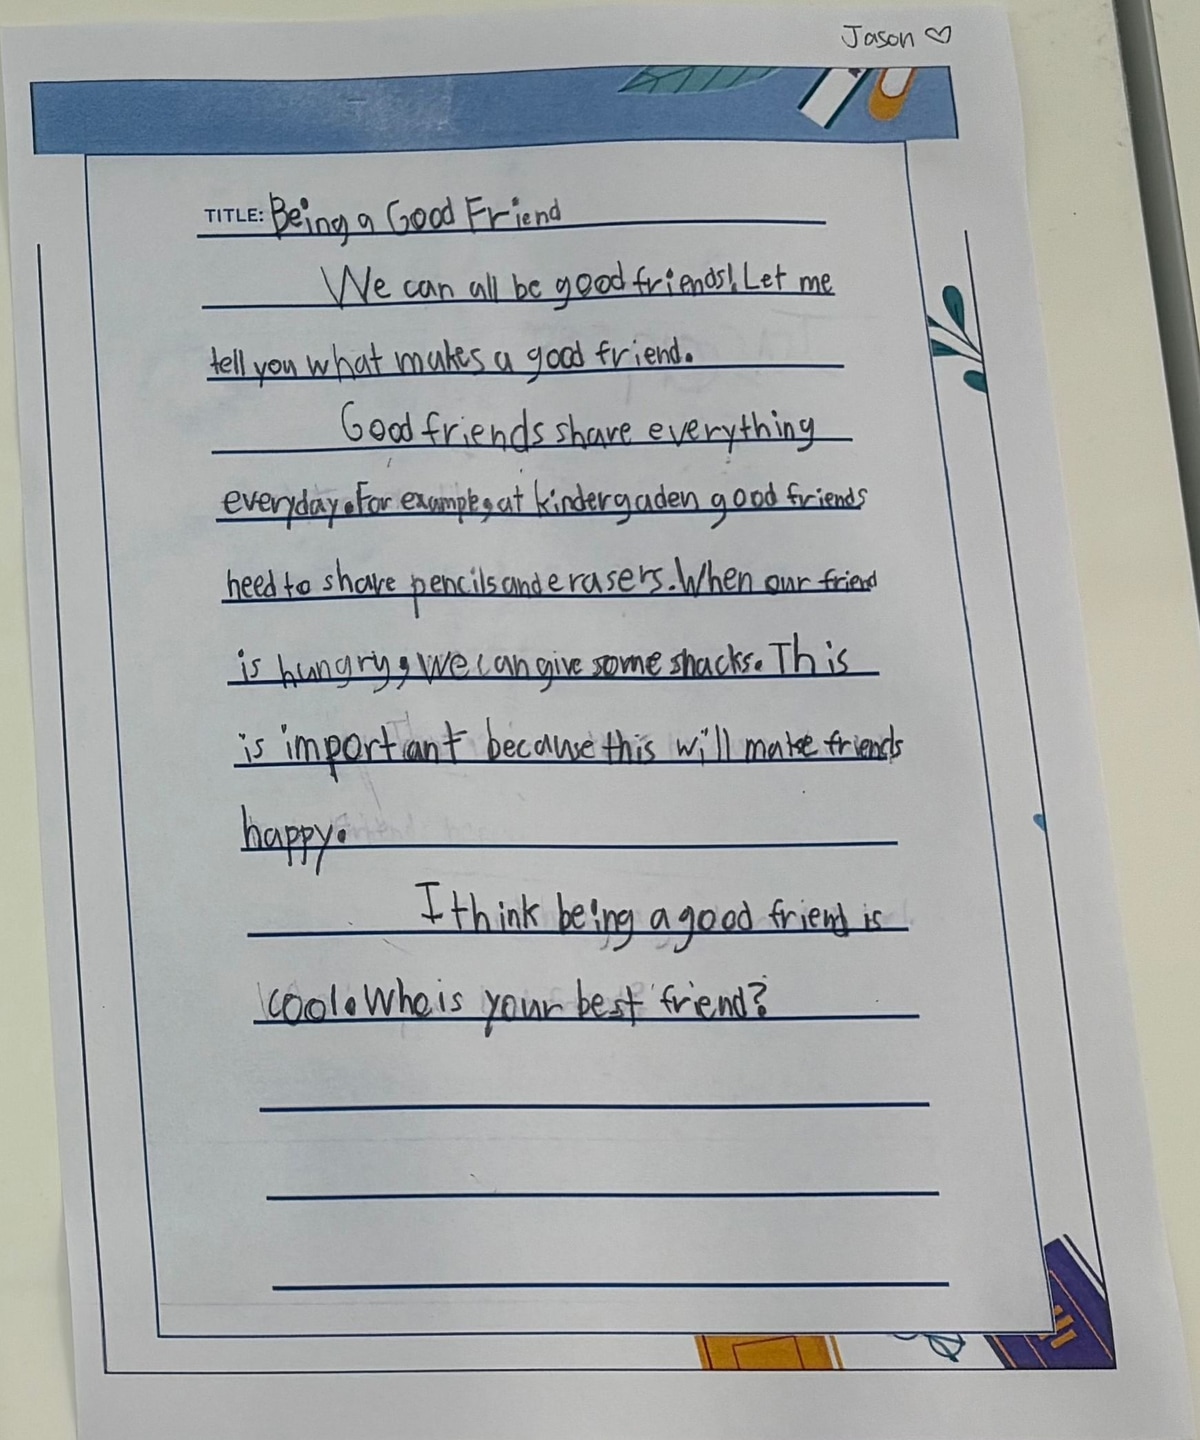 Jason ♡
TITLE: Being a Good Friend
We can all be good friends! Let me
tell you what makes a good friend.
Good friends share everything
everyday. For example, at kindergaden good friends
need to share pencils and erasers. When our friend
is hungry, we can give some snacks. This
is important because this will make friends
happy.
I think being a good friend is
cool. Who is your best friend?